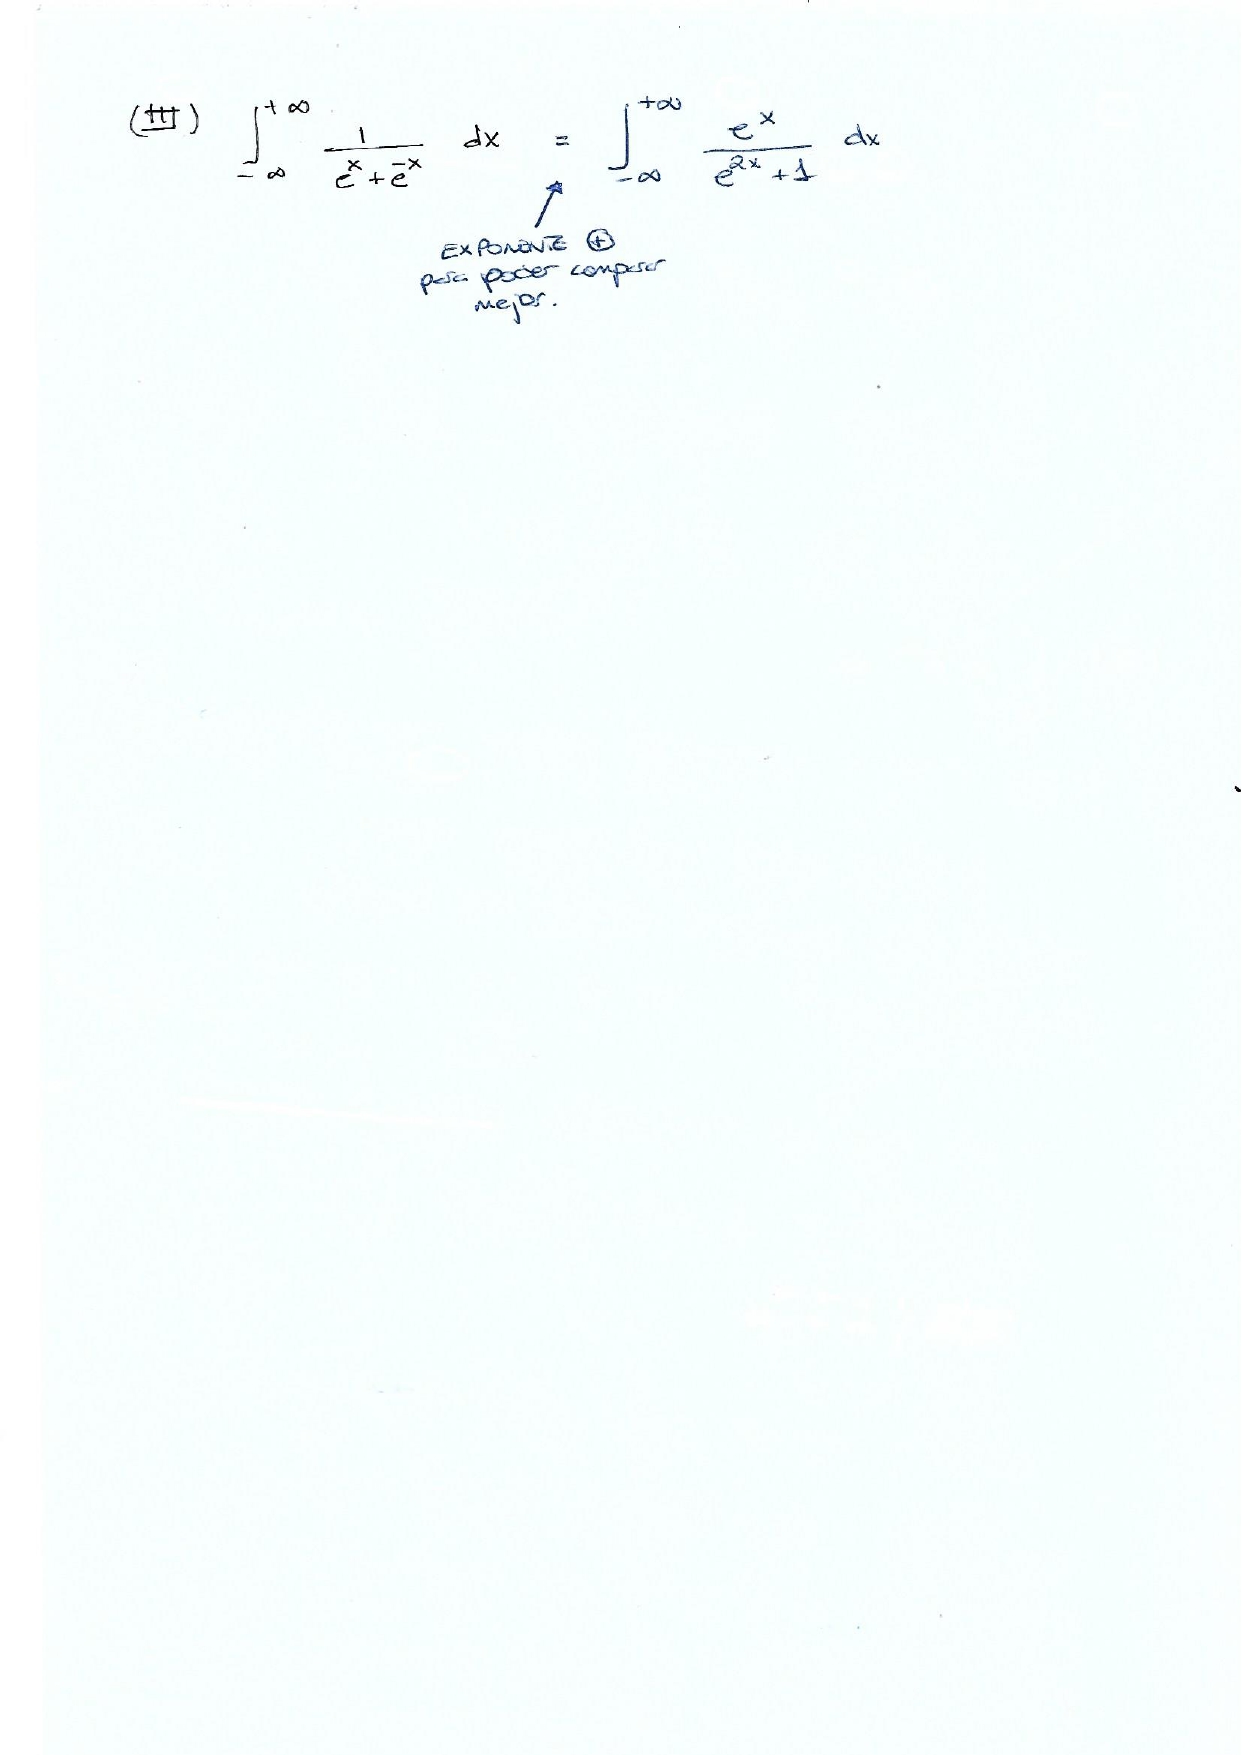 (III) ∫_{-∞}^{+∞} 1/(e^x + e^{-x}) dx = ∫_{-∞}^{+∞} e^x/(e^{2x} + 1) dx
EXPONENTE ⊕
para poder comparar
mejor.